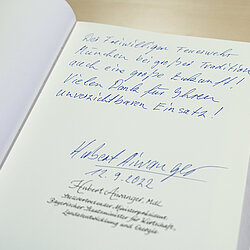 Der Freiwilligen Feuerwehr
München bei großer Tradition
auch eine große Zukunft!
Vielen Dank für Ihren
unverzichtbaren Einsatz!
Hubert Aiwanger
12.9.2022
Hubert Aiwanger, MdL
Stellvertretender Ministerpräsident
Bayerischer Staatsminister für Wirtschaft,
Landesentwicklung und Energie